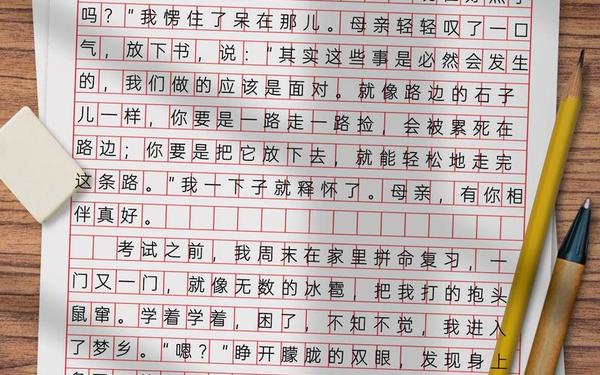 吗？“我愣住了呆在那儿。母亲轻轻叹了一口
气，放下书，说：“其实这些事是必然会发生
的，我们做的应该是面对。就像路边的石子
儿一样，你要是一路走一路捡，会被累死在
路边；你要是把它放下去，就能轻松地走完
这条路。”我一下子就释怀了。母亲，有你相
伴真好。
考试之前，我周末在家里拼命复习，一
门又一门，就像无数的冰雹，把我打的抱头
鼠窜。学着学着，困了，不知不觉，我进入
了梦乡。“嗯？”睁开朦胧的双眼，发现身上